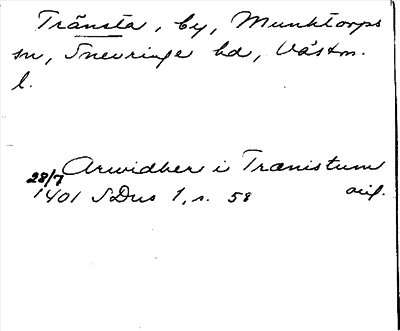 Tränsta, by, Munktorps
sn, Snevringe hd, Västm.
l.
28/7 Arwidher i Trænistum
1401 SDns 1, s. 58 orig.